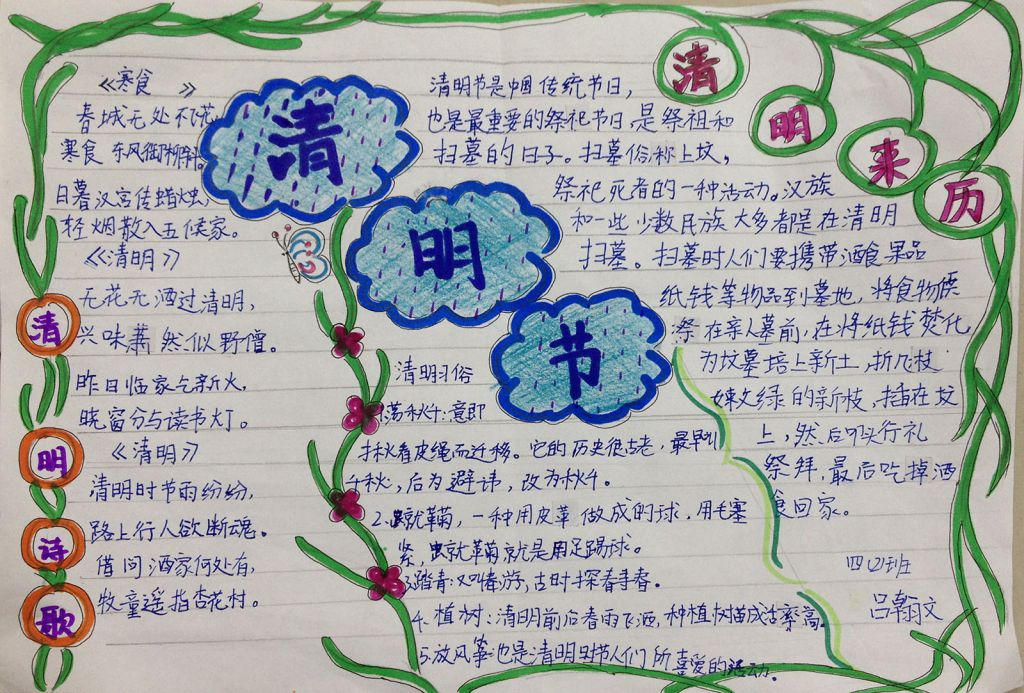 清
明
节
清明来历
清明节是中国传统节日，
也是最重要的祭祀节日，是祭祖和
扫墓的日子。扫墓俗称上坟，
祭祀死者的一种活动。汉族
和一些少数民族大多都是在清明
扫墓。扫墓时人们要携带酒食果品
纸钱等物品到墓地，将食物供
祭在亲人墓前，在将纸钱焚化，
为坟墓培上新土，折几枝
嫩绿的新枝，插在坟
上，然后叩头行礼
祭拜，最后吃掉酒
食回家。
四（2）班
吕翰文
清明诗歌
《寒食》
春城无处不飞花，
寒食东风御柳斜。
日暮汉宫传蜡烛，
轻烟散入五侯家。
《清明》
无花无酒过清明，
兴味萧然似野僧。
昨日临家乞新火，
晓窗分与读书灯。
《清明》
清明时节雨纷纷，
路上行人欲断魂。
借问酒家何处有，
牧童遥指杏花村。
清明习俗
荡秋千：意即
揪着皮绳而迁移。它的历史很古老，最早叫
千秋，后为避讳，改为秋千。
2.蹴鞠，一种用皮革做成的球，用毛塞
紧，蹴鞠就是用足踢球。
3.踏青又叫春游，古时探春寻春。
4.植树：清明前后春雨飞洒，种植树苗成活率高。
5.放风筝也是清明时节人们所喜爱的活动。